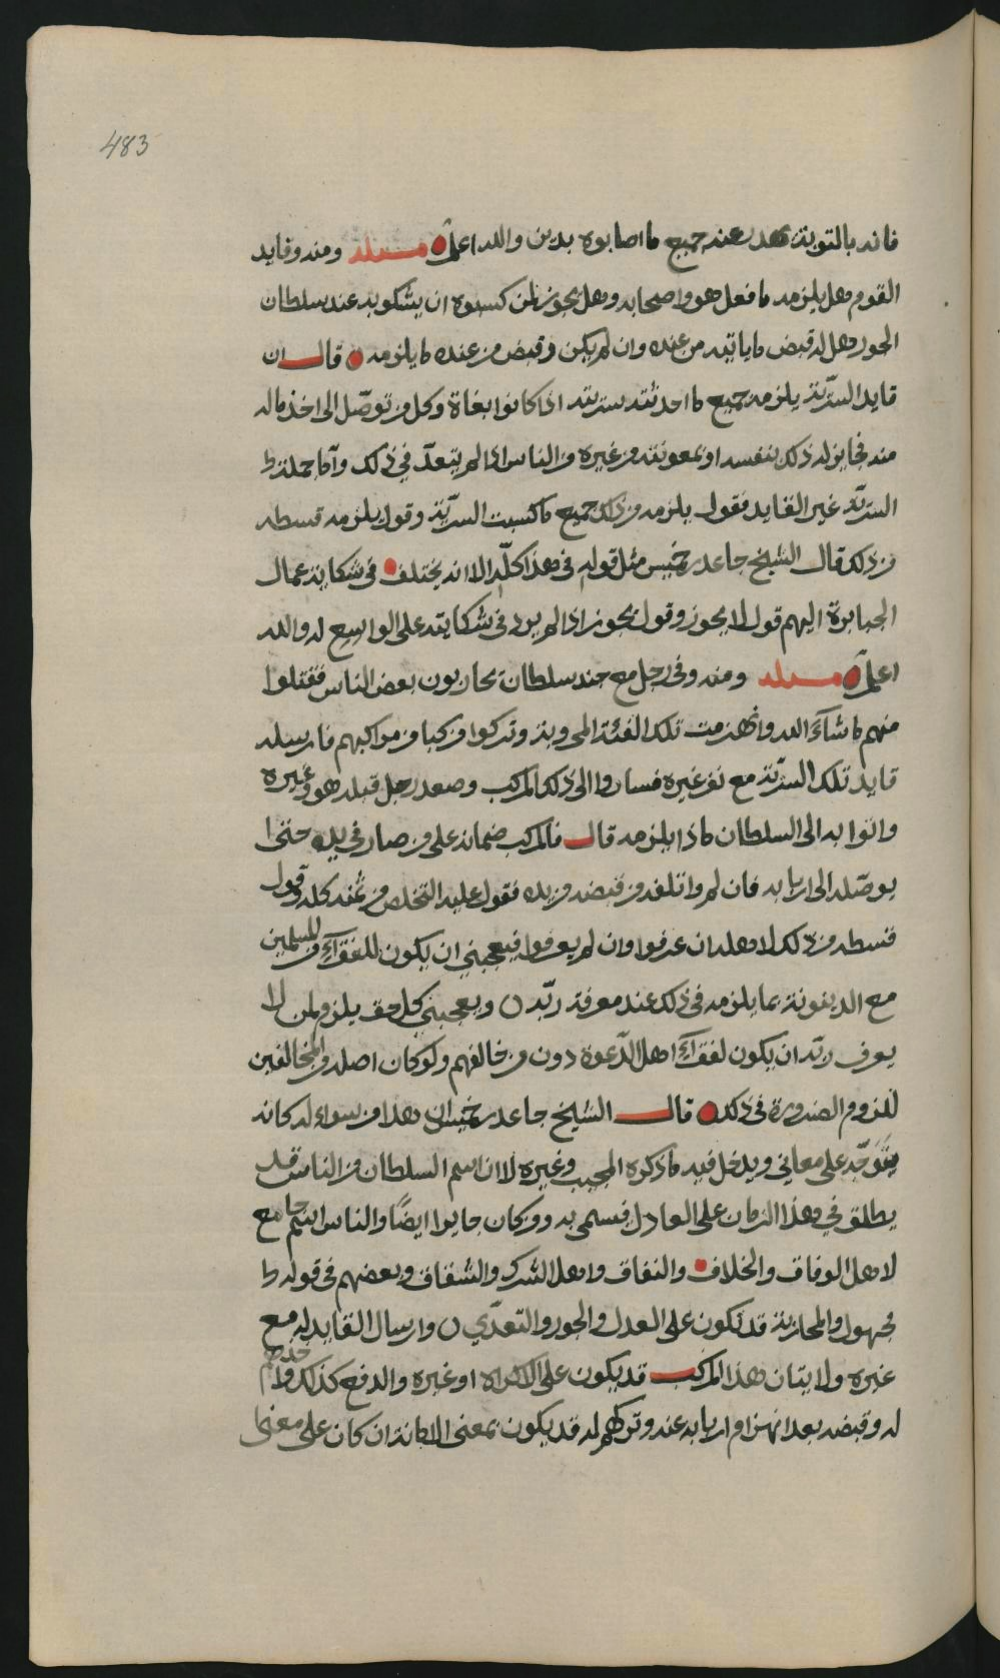 483
فانه بالتوبة يهدر عنه جميع ما اصابوه بدين والله اعلم مسئلة ومنه وقايد
القوم هل يلزمه ما فعل هو واصحابه وهل يجوز لمن كسبوه ان يشكو به عند سلطان
الجور وهل له قبض ما ياتيه من عنده وان لم يكن وقبض من عنده ما يلزمه قال ان
قايد السرّية يلزمه جميع ما احدثته سريته اذا كانوا بغاة وكل من توصّل الى اخذ ماله
منه فجايز له ذلك بنفسه او بمعونته من غيره من الناس اذا لم يتعدّ في ذلك وأما جملة
السريّة غير القايد فقول يلزمه من ذلك جميع ما كسبت السريّة وقول يلزمه قسطه
من ذلك قال الشيخ جاعد بن خميس مثل قوله في هذا كلّه الا انه يختلف في شكاية عمال
الجبابرة اليهم قول لا يجوز وقول يجوز اذا لم يرد في شكايته على الواسع له والله
اعلم مسئلة ومنه وفي رجل مع جند سلطان يحاربون بعض الناس فقتلوا
منهم ما شآء الله وانهزمت تلك الفئة المحروبة وتركوا مركبا من مراكبهم فارسله
قايد تلك السرّية مع نفر غيره فساروا الى ذلك المركب وصعد رجل قبله هو وغيره
واتوا به الى السلطان ماذا يلزمه قال فالمركب ضمانه على من صار في يده حتى
يوصّله الى اربابه فان لم واتلفه من قبضه من يده فقول عليه التخلص من ثمنه كله وقول
قسطه من ذلك لاهله ان عرفوا وان لم يعرفوا فيعجبني ان يكون للفقرآء من المسلمين
مع الدينونة بما يلزمه في ذلك عند معرفة ربّه ويعجبني كل حق يلزم لمن لا
يعرف ربّه ان يكون لفقرآء اهل الدّعوة دون من خالفهم ولو كان اصله من المخالفين
للزوم الضرورة في ذلك قال الشيخ جاعد بن خميس ان هذا من سواله كانه
يتوجّه على معاني ويدخل فيه ما ذكره المجيب وغيره لان اسم السلطان من الناس قد
يطلق في هذا الزمان على العادل فسمى به ومن كان جايرا ايضًا والناس اسم جامع
لاهل الوفاق والخلاف والنفاق واهل الشرك والشقاق وبعضهم في قوله
مجهول والمحاربة قد تكون على العدل والجور والتعدّي وارسال القايد له مع
غيره ولاتيان هذا المركب قد يكون على الاكراه او غيره والدفع كذلك واخذهم
له وقبضه بعد انهزام اربابه عنه وتركهم له قد يكون بمعنى الامانة ان كان على معنى